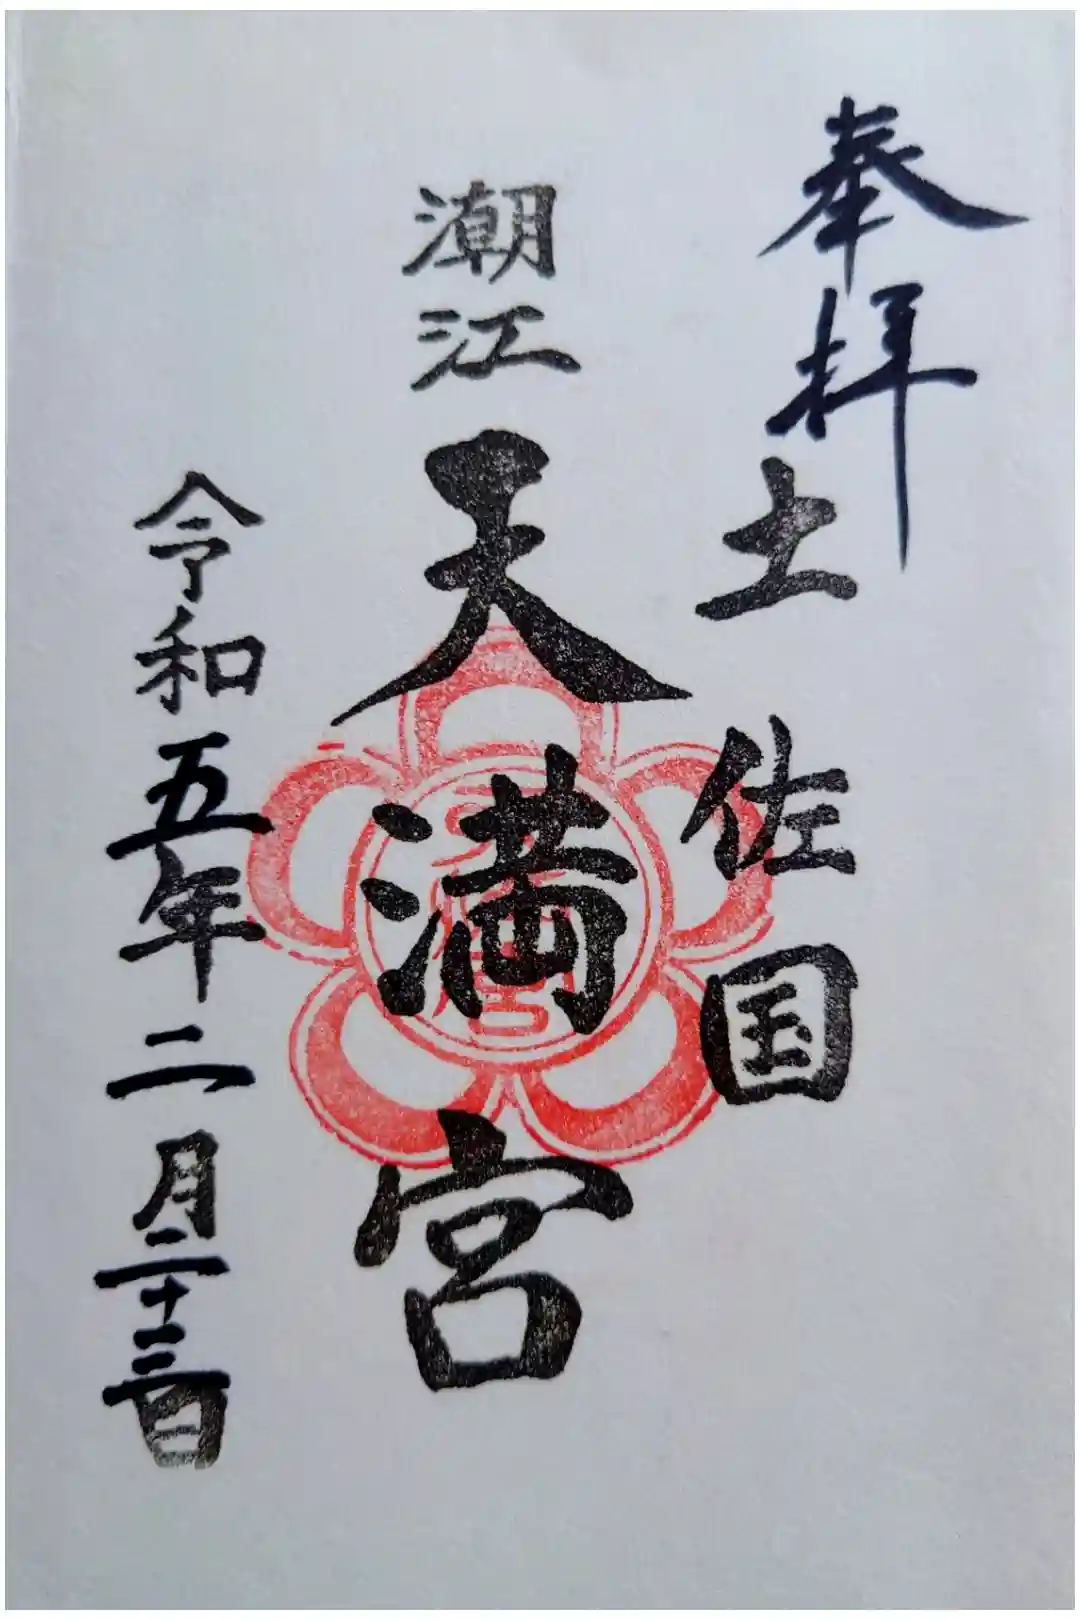 奉拝
土佐国
潮江天満宮
令和五年二月二十三日